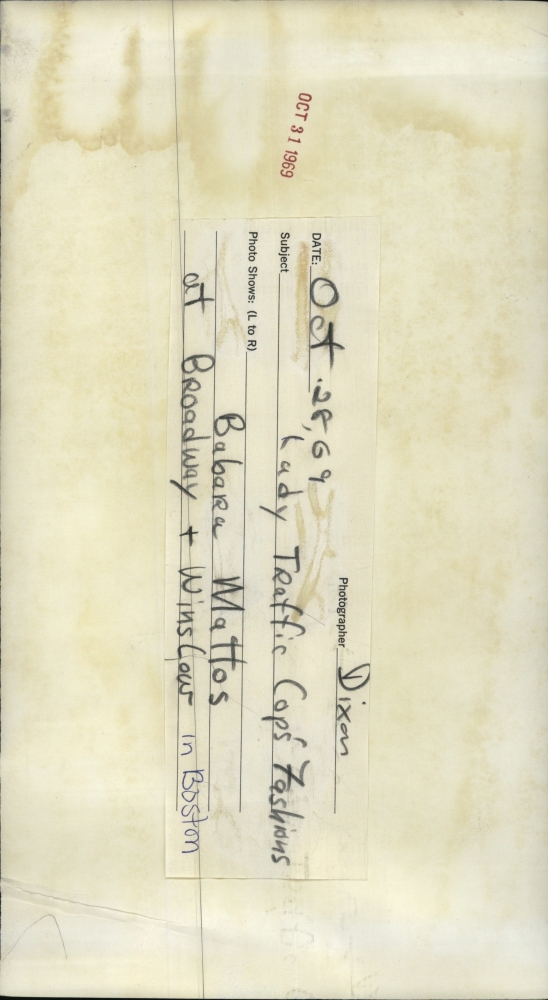 OCT 31 1969
Photographer Dixon
DATE: Oct. 28, 69
Subject Lady Traffic Cops Fashions
Photo Shows: (L to R)
Babara Mattos
at Broadway + Winslow in Boston